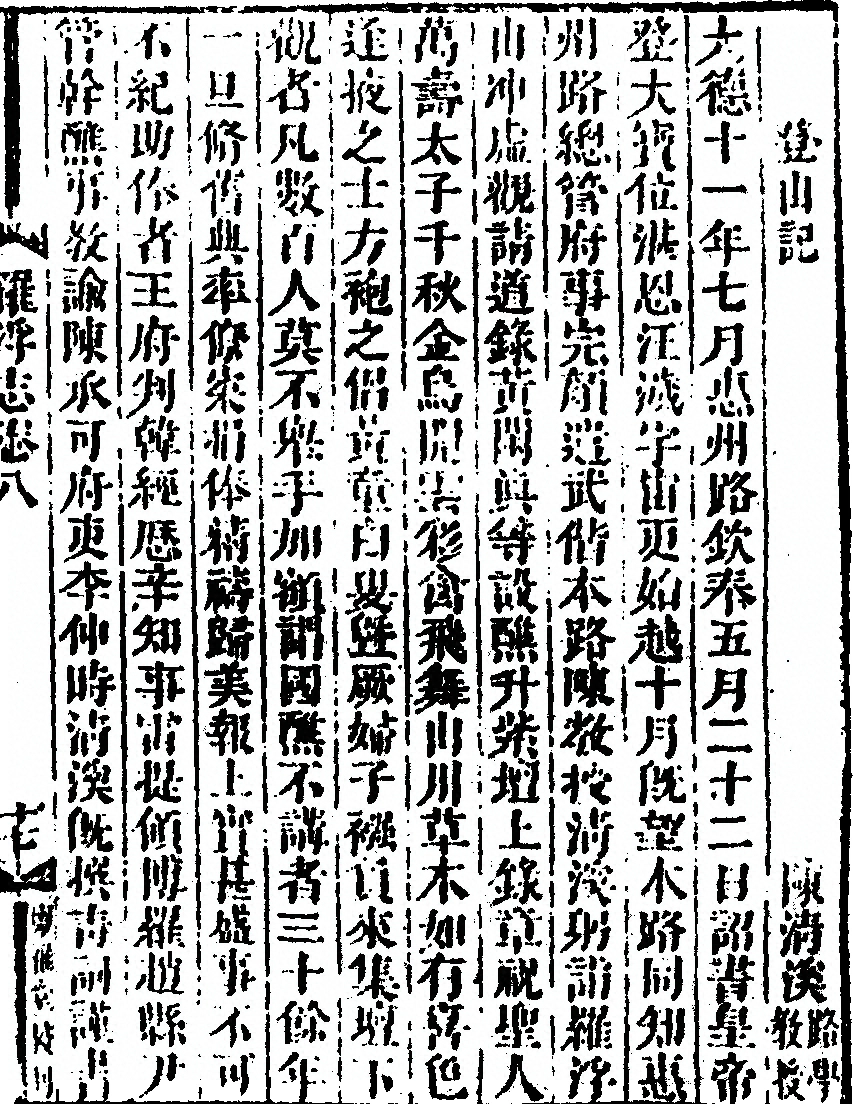 登山記
陳淸溪路學教授
大德十一年七月惠州路欽奉五月二十二日詔書皇帝
登大寶位湛恩汪濊宇宙更始越十月旣望本路同知惠
州路總管府事完顔遜武偕本路陳敎授淸溪躬詣羅浮
山冲虛觀請道錄黃閑眞等設醮升紫壇上錄章祝聖人
萬壽太子千秋金烏開雲彩禽飛舞山川草木如有喜色
逢掖之士方袍之侶黃童白叟曁厥婦子襁負來集壇下
觀者凡數百人莫不舉手加額謂國醮不講者三十餘年
一旦修舊典率僚寀捐俸精禱歸美報上實甚盛事不可
不紀助俸者王府判韓經歷辛知事雷提領博羅趙縣尹
管幹醮事敎諭陳承可府吏李仲時淸溪旣撰靑詞謹書
羅浮志卷八